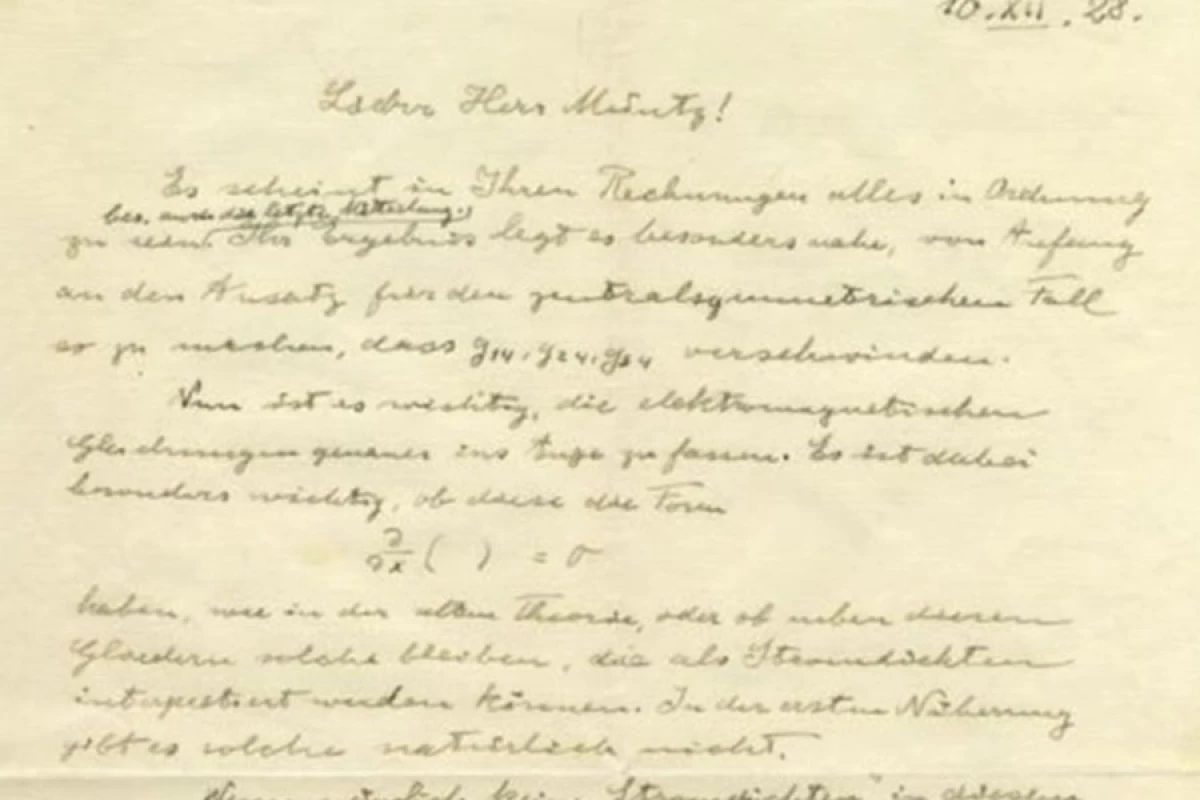 10.XII.28.
Lieber Herr Müntz!
Es scheint in Ihren Rechnungen alles in Ordnung
bes. auch die letzte Mitteilung.
zu sein. Ihr Ergebnis legt es besonders nahe, von Anfang
an den Ansatz für den zentralsymmetrischen Fall
so zu machen, dass g14, g24, g34 verschwinden.
Nun ist es wichtig, die elektromagnetischen
Gleichungen genauer ins Auge zu fassen. Es ist dabei
besonders wichtig, ob diese die Form
∂/∂x ( ) = 0
haben, wie in der alten Theorie, oder ob neben diesen
Gliedern solche bleiben, die als Stromdichten
interpretiert werden können. In der ersten Näherung
gibt es solche natürlich nicht.
keine "Stromdichten" in diesem